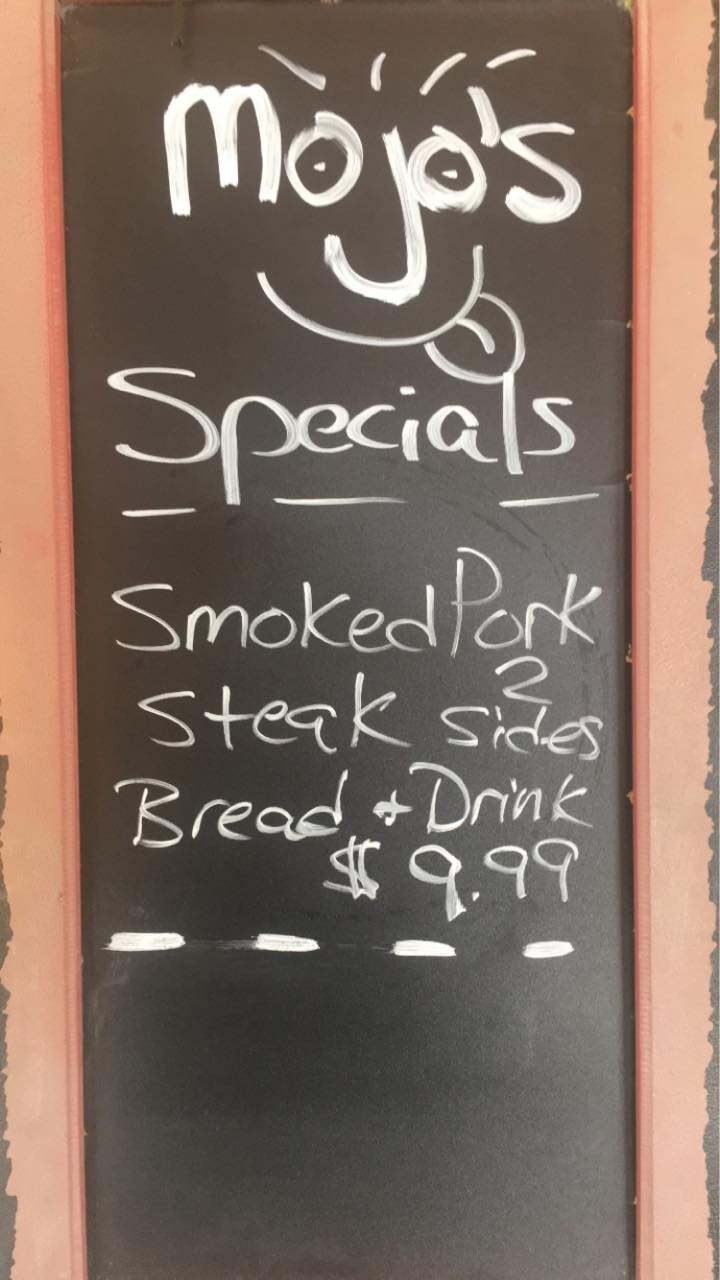 Mojo's
Specials
Smoked Pork
Steak 2 Sides
Bread + Drink
$9.99